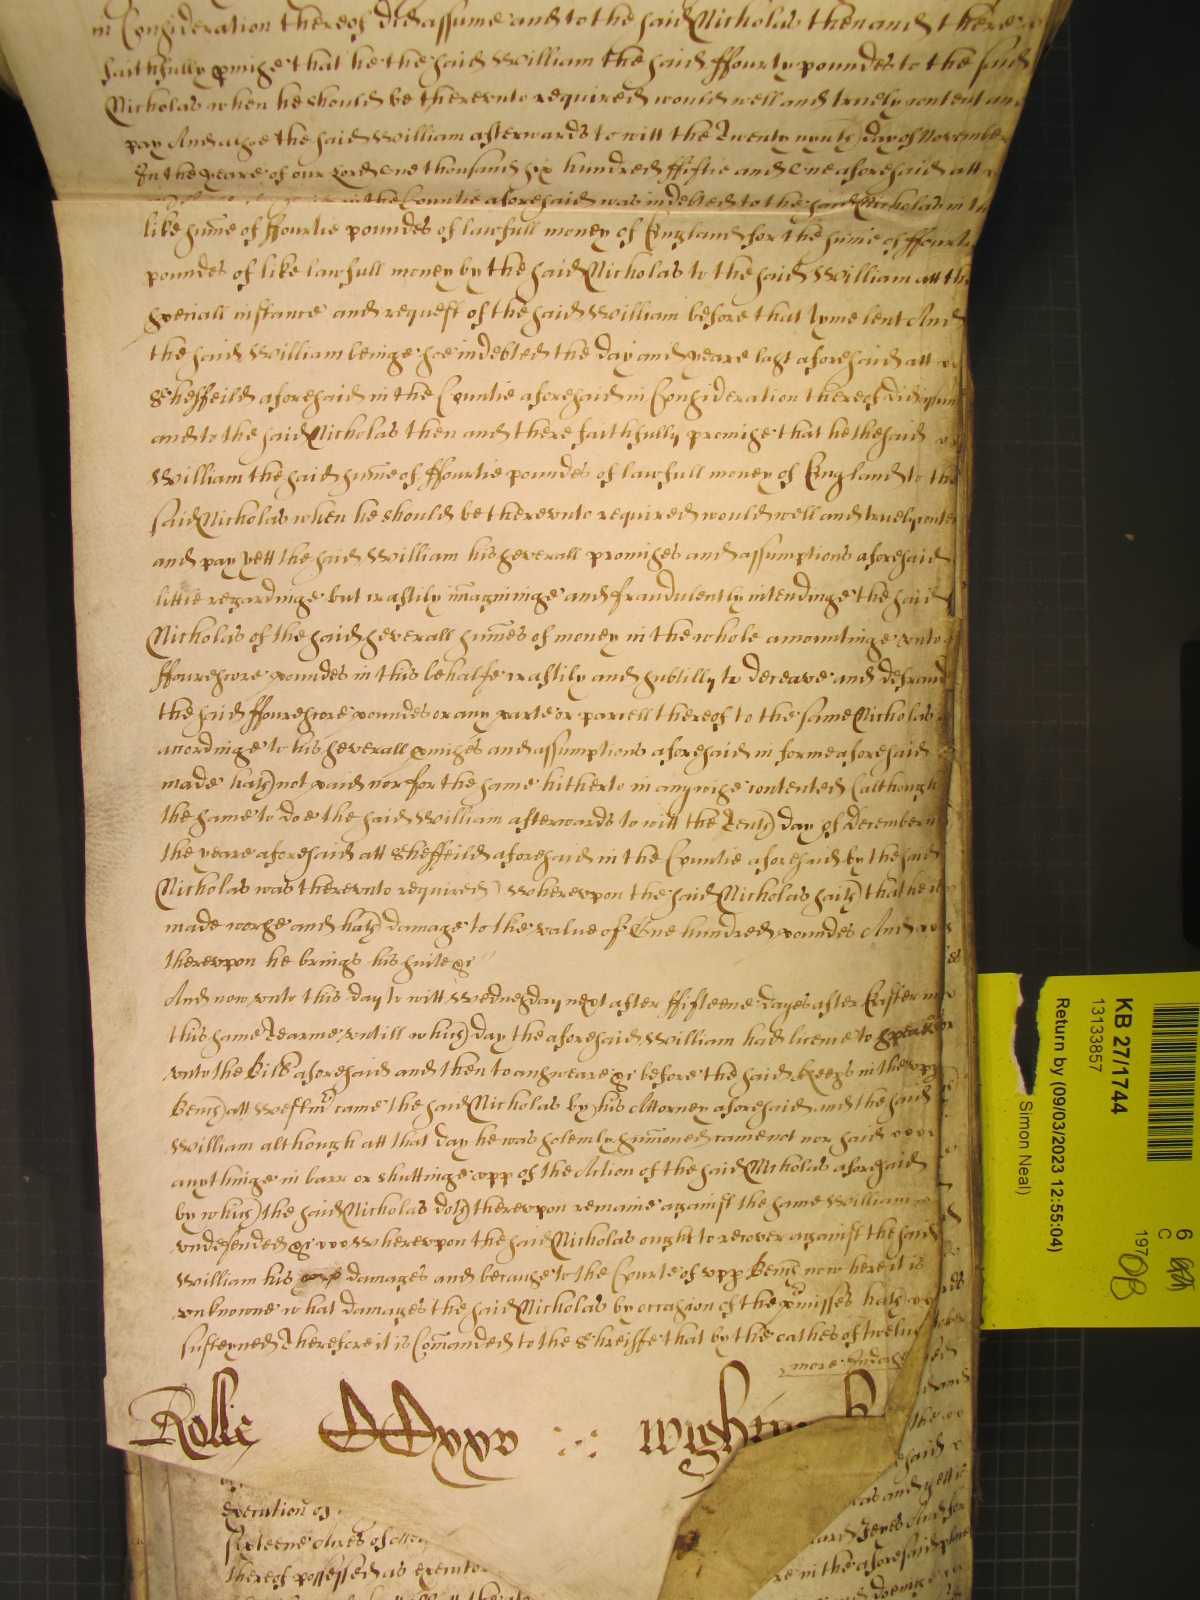 in Consideration thereof did assume and to the said Nicholas then and there
faithfully pmise that he the said William the said ffourty poundes to the said
Nicholas when he should be therevnto required would well and truely content and
pay And alsoe the said William afterwards to witt the Twenty nynth day of November
In the yeare of our Lord One thousand six hundred ffiftie and One aforesaid att
in the Countie aforesaid was indebted to the said Nicholas in
like sume of ffourtie poundes of lawfull money of England for the sume of ffourtie
poundes of like lawfull money by the said Nicholas to the said William att the
speciall instance and request of the said William before that tyme lent And
the said William beinge soe indebted the day and yeare last aforesaid att
Sheffeild aforesaid in the Countie aforesaid in Consideration thereof did assume
and to the said Nicholas then and there faithfully promise that he the said
William the said sume of ffourtie poundes of lawfull money of England to the
said Nicholas when he should be therevnto required would well and truely
and pay yett the said William his severall promises and assumptions aforesaid
little regardinge but craftily imagininge and fraudulently intendinge the said
Nicholas of the said severall sumes of money in the whole amountinge vnto
ffourescore poundes in this behalfe craftily and subtilly to deceave and defraud
the said ffourescore poundes or any parte or parcell thereof to the same Nicholas
accordinge to his severall pmises and assumptions aforesaid in forme aforesaid
made hath not paid nor for the same hitherto in anywise contented (although
the same to doe the said William afterwards to witt the Tenth day of December in
the yeare aforesaid att Sheffeild aforesaid in the Countie aforesaid by the said
Nicholas was therevnto required) Wherevpon the said Nicholas saith that he is
made worse and hath damage to the value of One hundred poundes And
therevpon he brings his suite &c
And now vnto this day to witt Wednesday next after ffifteene dayes after Easter in
this same Tearme vntill which day the aforesaid William had licence to speake
vnto the Bill aforesaid and then to answeare &c before the said Keeps in the vpp
Bench att Westmr came the said Nicholas by his Attorney aforesaid and the said
William although att that day he was solemly sumoned came not nor said
anythinge in barr or shuttinge vpp of the Action of the said Nicholas aforesaid
by which the said Nicholas doth therevpon remaine against the same William
vndefended &c Wherevpon the said Nicholas ought to recover against the said
William his damages and because to the Courte of vpp Bench now here it is
vnknowne what damages the said Nicholas by occasion of the pmisses hath
susteyned Therefore it is Comanded to the Shreiffe that by the oathes of twelue
more
Rolle CCxxv wightm
Execution &c
Sixteene Acres of
thereof possessed as executor
KB 27/1744
13133857
Return by (09/03/2023 12:55:04)
Simon Neal)
6
C
197